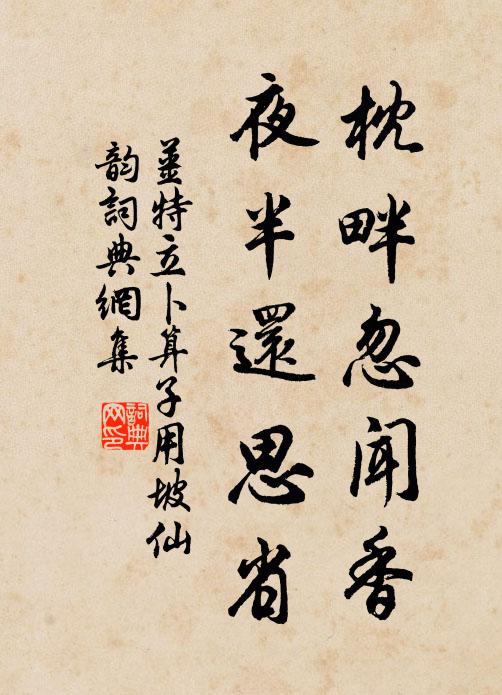 枕畔忽聞香
夜半還思省
姜特立卜算子用坡仙
韵詞典網集
詞典网印